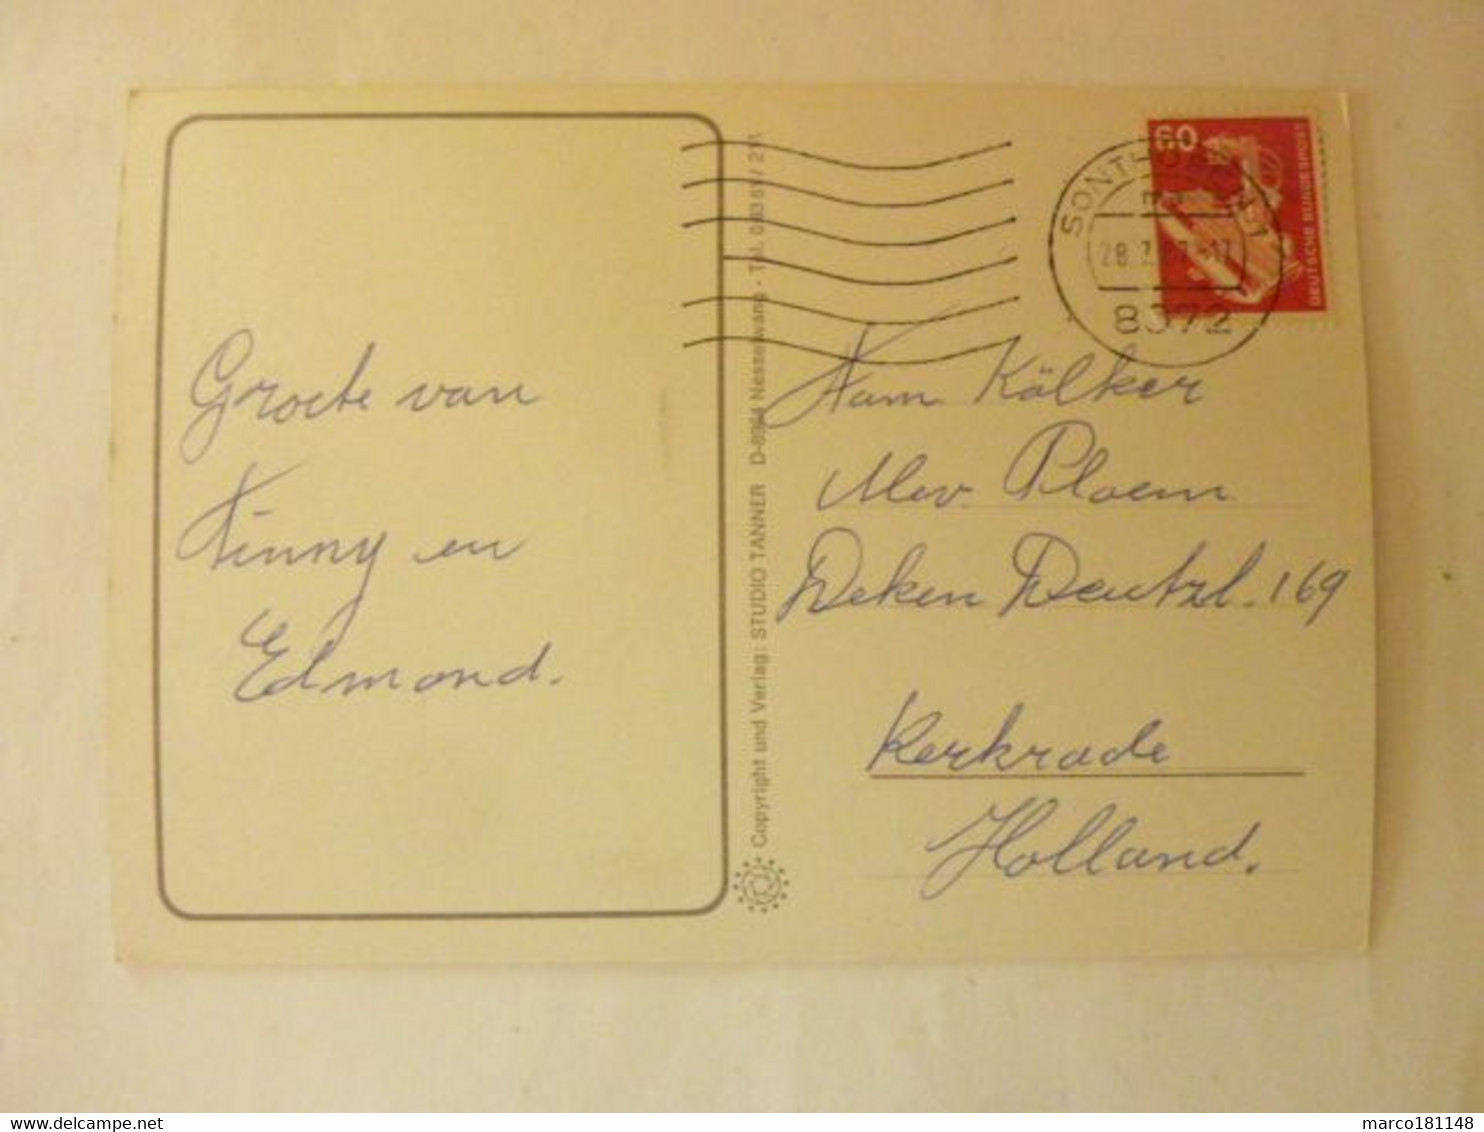 Groete van
Kinny en
Edmond.
Copyright und Verlag: STUDIO TANNER D-8964 Nesselwang - Tel. 0 83 61 /
60
DEUTSCHE BUNDESPOST
SONTHOFEN 1
28.7.
8972
Fam Kölker
Mev. Ploem
Deken Deutzl. 169
Kerkrade
Holland.
marco181148